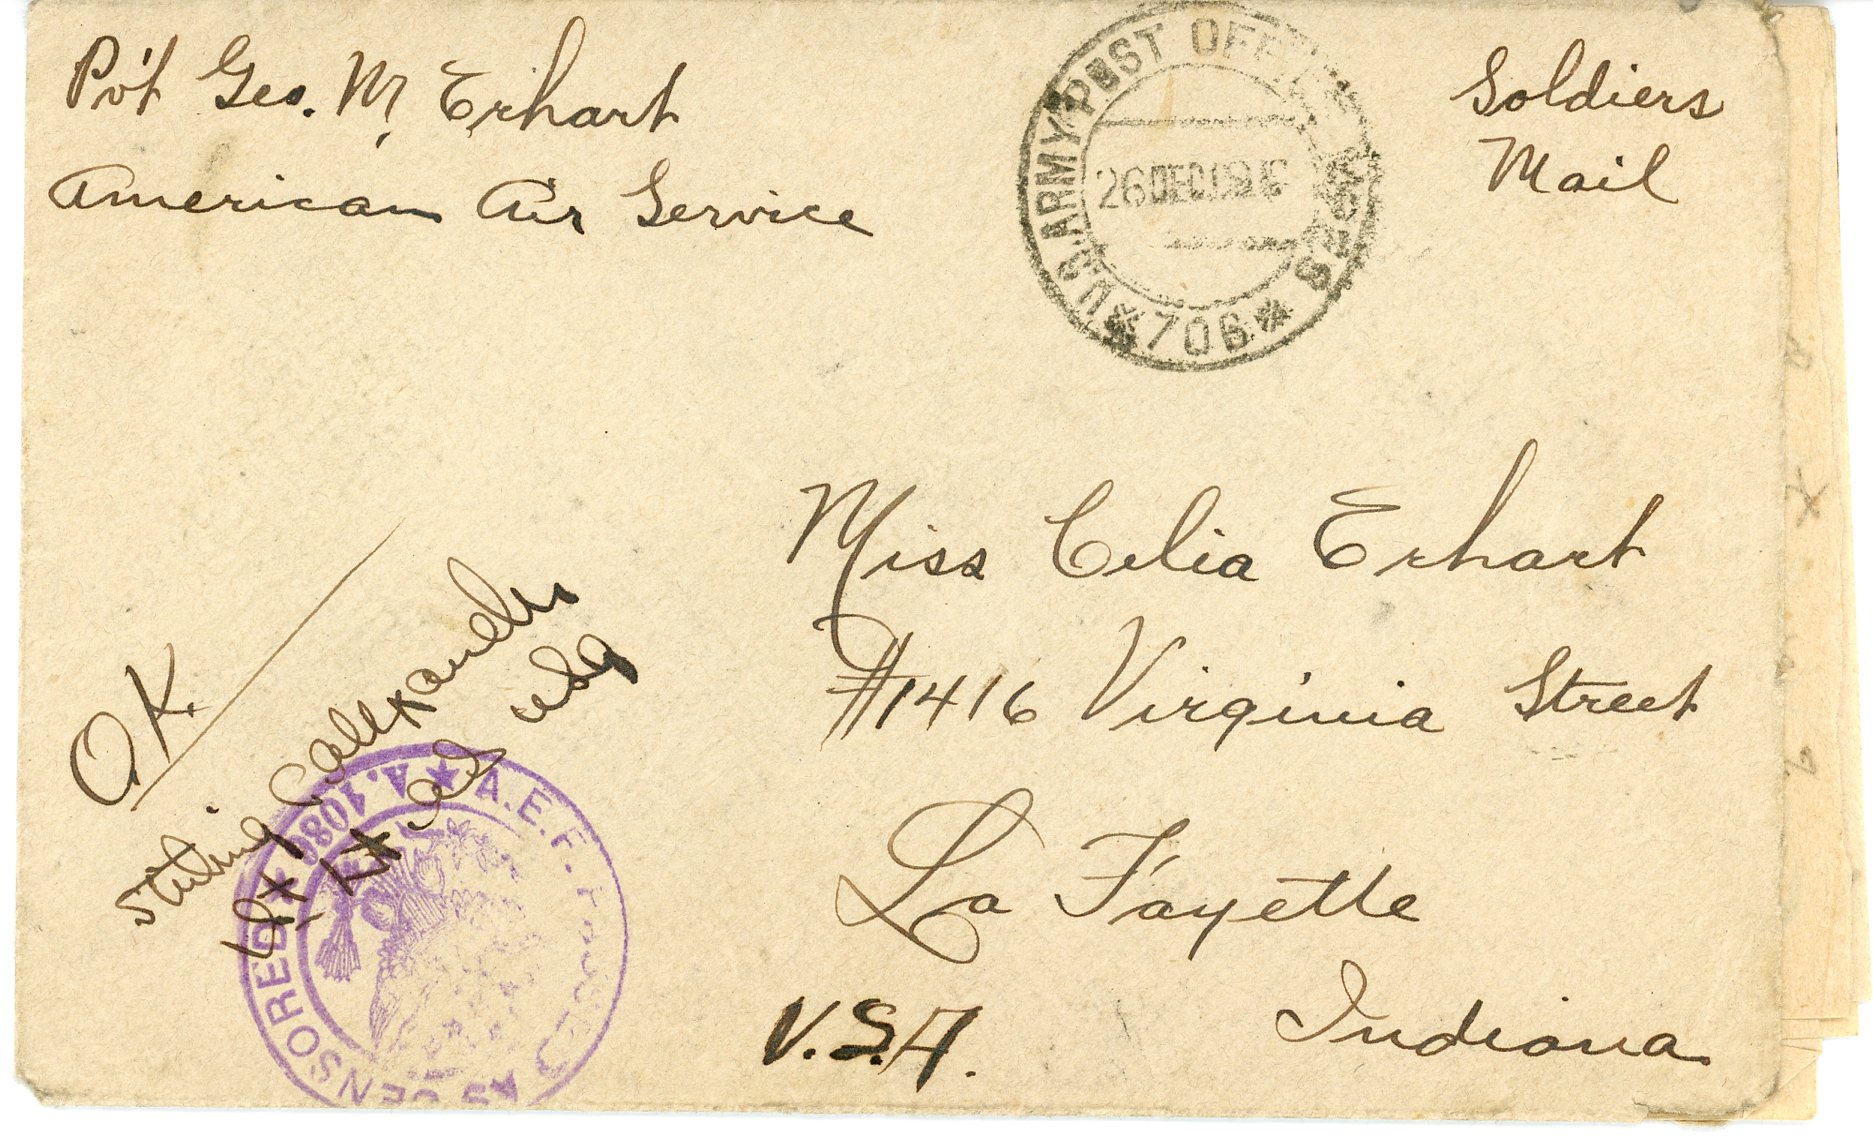 Pvt Geo. M. Erhart
American Air Service
Soldiers
Mail
U.S. ARMY POST OFFICE
26 DEC 1918
* 706 *
Miss Celia Erhart
#1416 Virginia Street
La Fayette
Indiana
U.S.A.
O.K.
A.E.F. PASSED AS CENSORED
A.1080